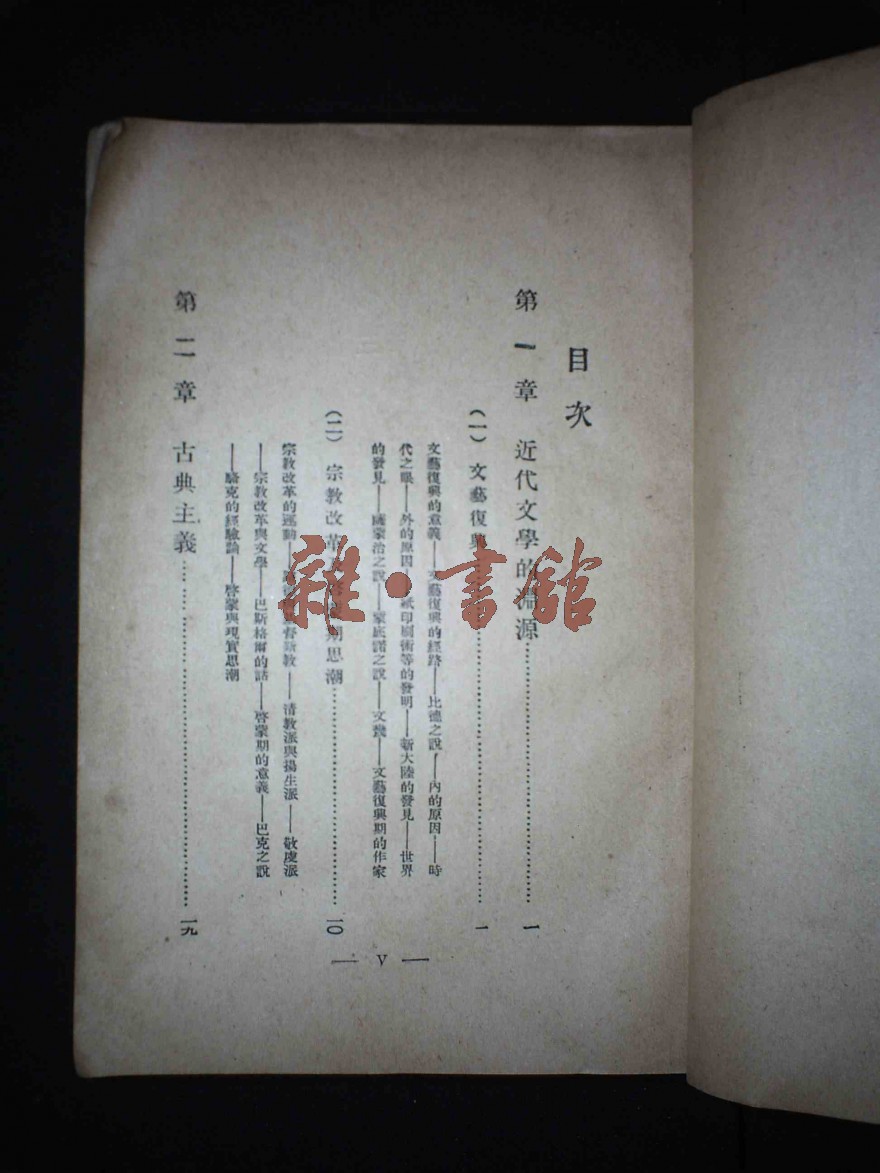 目次
第一章 近代文學的淵源……一
(一) 文藝復興……一
文藝復興的意義——文藝復興的經路——比德之說——內的原因——時
代之眼——外的原因——紙印刷術等的發明——新大陸的發見——世界
的發見——薩蒙治之說——蒙底諾之說——文藝復興期的作家
(二) 宗教改革 啓蒙期思潮……一〇
宗教改革的運動—— 督新教——清教派與揚生派——敬虔派
——宗教改革與文學——巴斯格爾的話——啓蒙期的意義——巴克之說
——駱克的經驗論——啓蒙與現實思潮
第二章 古典主義……一九
— V —
雜·書館